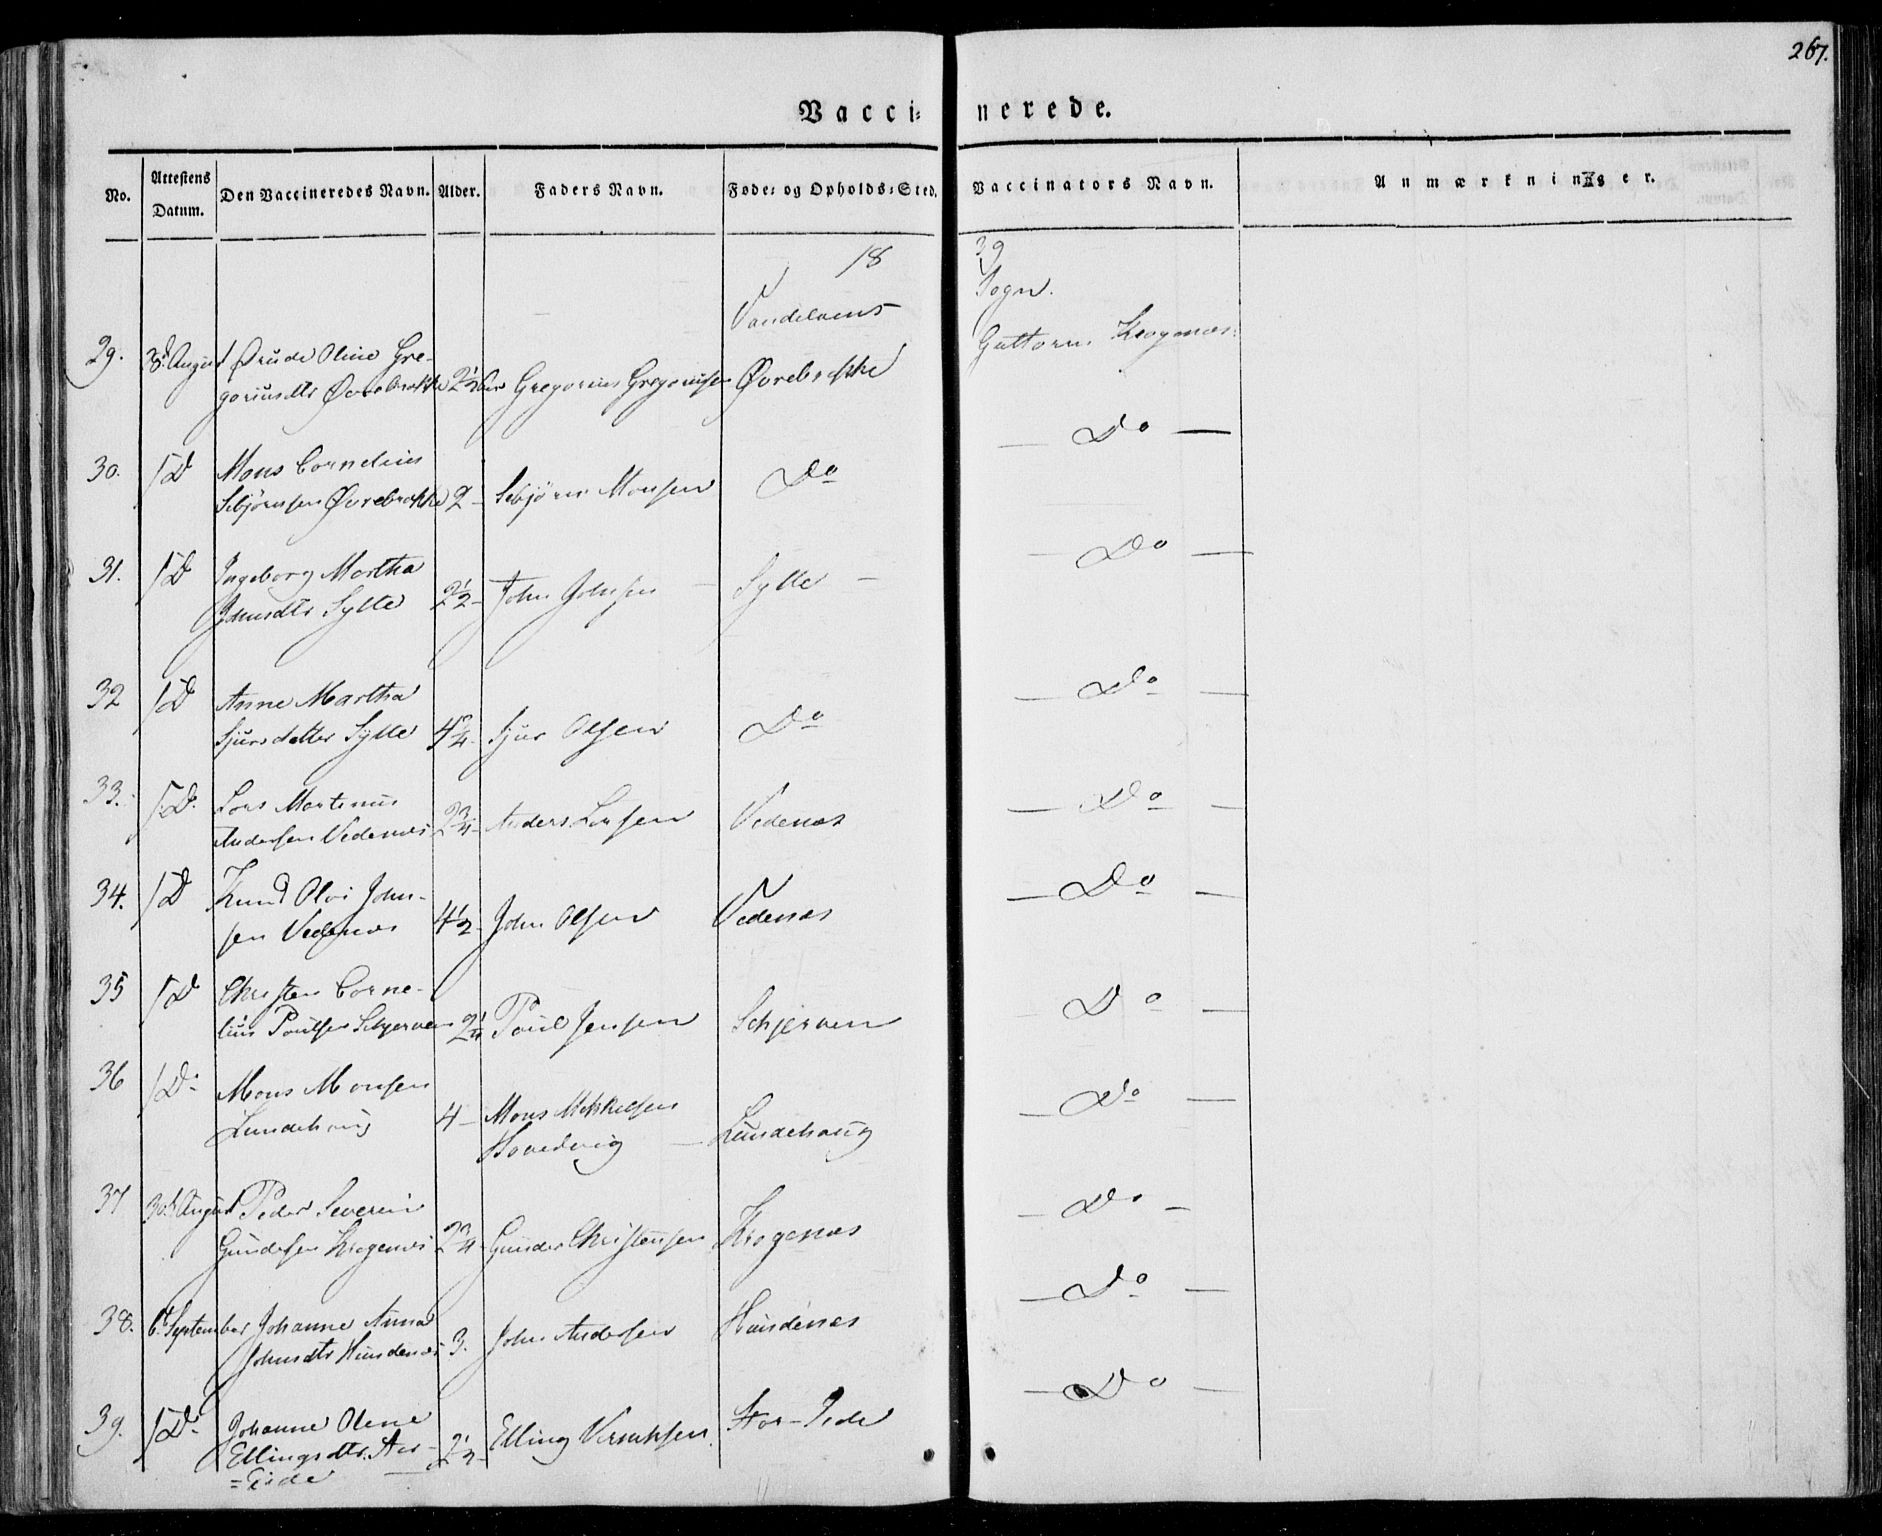 267.
Vaccinerede.
No. Attestens Datum. Den Vaccineredes Navn. Alder. Faders Navn. Føde- og Opholds-Sted. Vaccinators Navn. Anmærkninger.
18 39
Vandelvens Sogn.
Guttorm Krogenæs.
29. August Drude Oline Gre-
goriusdtr Øvrebrække 2½ Gregorius Gregoriusen Øvrebrække
Do
30. D Mons Cornelius
Sebjørnsen Øvrebrække 2 - Sebjørn Monsen Do
Do
31. D Ingeborg Martha
Johnsdtr Sylte 2½ - John Johnsen - Sylte -
Do
32 D Anne Martha
Sjursdatter Sylte 4 Sjur Olsen Do
Do
33. D. Lars Martinus
Andersen Vedenæs 2¾ - Anders Larsen Vedenæs
Do
34. D Knud Olai John-
sen Vedenæs 4½ - John Olsen Vedenæs
Do
35 D Christen Corne-
lius Poulsen Schjerven 2¼ Poul Jensen Schjerven
Do
36 D. Mons Monsen
Lundehoug 4 - Mons Mikkelsen
Hovedvig - Lundehoug
Do
37 30. August Peder Severin
Gundersen Krogenæs 2¾ - Gunder Christensen Krogenæs
Do
38. 6. September Johanne Anna
Johnsdtr Hundenæs 3. John Andersen Hundenæs
Do
39. D. Johanne Olene
Ellingsdtr. Stor-
=Eide 2½ - Elling Stor-Eide
Do